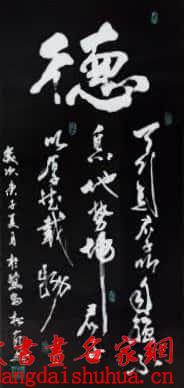 德
天行健君子以自强不
息地势坤君子
以厚德载物
歲次庚子夏月於
書畫名家網
angdaishuhua.cn